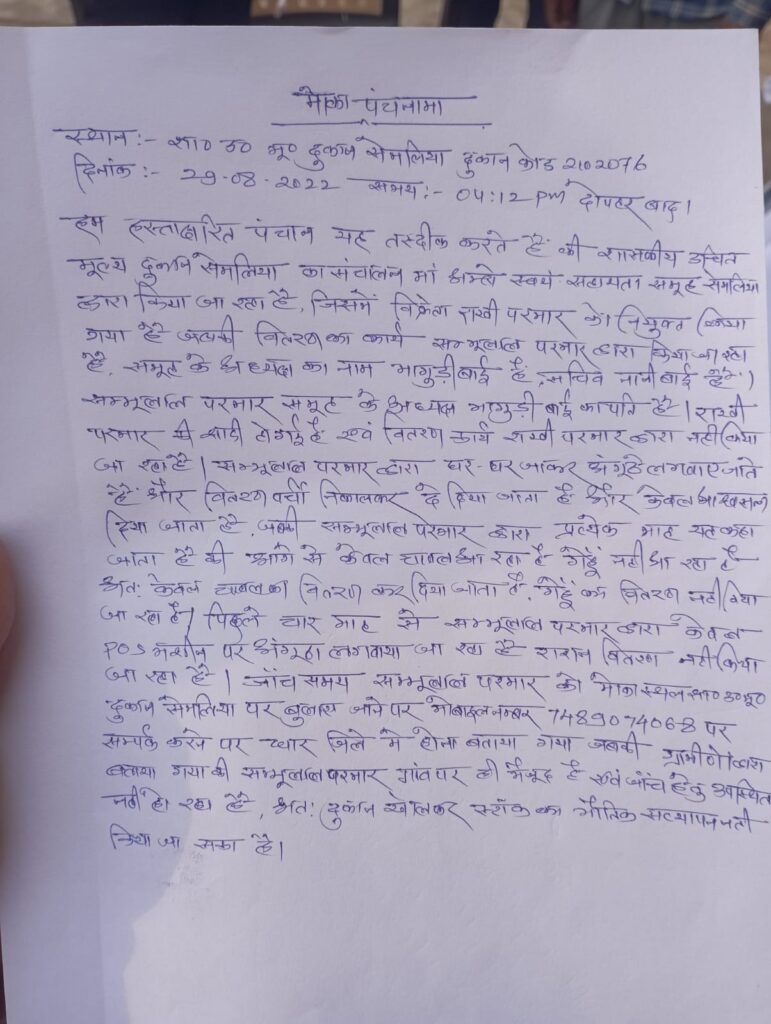 मौका पंचनामा
स्थान:- शा० उ० मू० दुकान सेमलिया दुकान कोड 2102076
दिनांक:- 29-08-2022 समय:- 04:12 PM दोपहर बाद।
हम हस्ताक्षरित पंचान यह तस्दीक करते है की शासकीय उचित
मूल्य दुकान सेमलिया का संचालन माँ अम्बे स्वयं सहायता समूह सेमलिया
द्वारा किया जा रहा है, जिसमें विक्रेता राखी परमार को नियुक्त किया
गया है जबकी वितरण का कार्य सम्भूलाल परमार द्वारा किया जा रहा
है, समूह के अध्यक्ष का नाम भागुड़ीबाई है, सचिव बाई है।
सम्भूलाल परमार समूह के अध्यक्ष भागुड़ी बाई का पति है। राखी
परमार की शादी हो गई है एवं वितरण कार्य राखी परमार द्वारा नही किया
जा रहा है। सम्भूलाल परमार द्वारा घर-घर जाकर अंगूठे लगवाए जाते
है और वितरण पर्ची निकालकर दे दिया जाता है और केवल
दिया जाता है, जबकी सम्भूलाल परमार द्वारा प्रत्येक माह यह कहा
जाता है की आगे से केवल चावल आ रहा है गेहूं नही आ रहा है
अत: केवल चावल का वितरण कर दिया जाता है, गेहूं का वितरण नही किया
जा रहा है। पिछले चार माह से सम्भूलाल परमार द्वारा केवल
POS मशीन पर अंगूठा लगवाया जा रहा है राशन वितरण नही किया
जा रहा है। जाँच समय सम्भूलाल परमार को मौका स्थल शा० उ० मू०
दुकान सेमलिया पर बुलाए जाने पर मोबाईल नम्बर 7489074068 पर
सम्पर्क करने पर धार जिले मे होना बताया गया जबकी ग्रामीणो द्वारा
बताया गया की सम्भूलाल परमार गांव पर ही मौजूद है एवं जाँच हेतु उपस्थित
नही हो रहा है, अत: दुकान खोलकर स्टॉक का भौतिक सत्यापन नही
किया जा सका है।